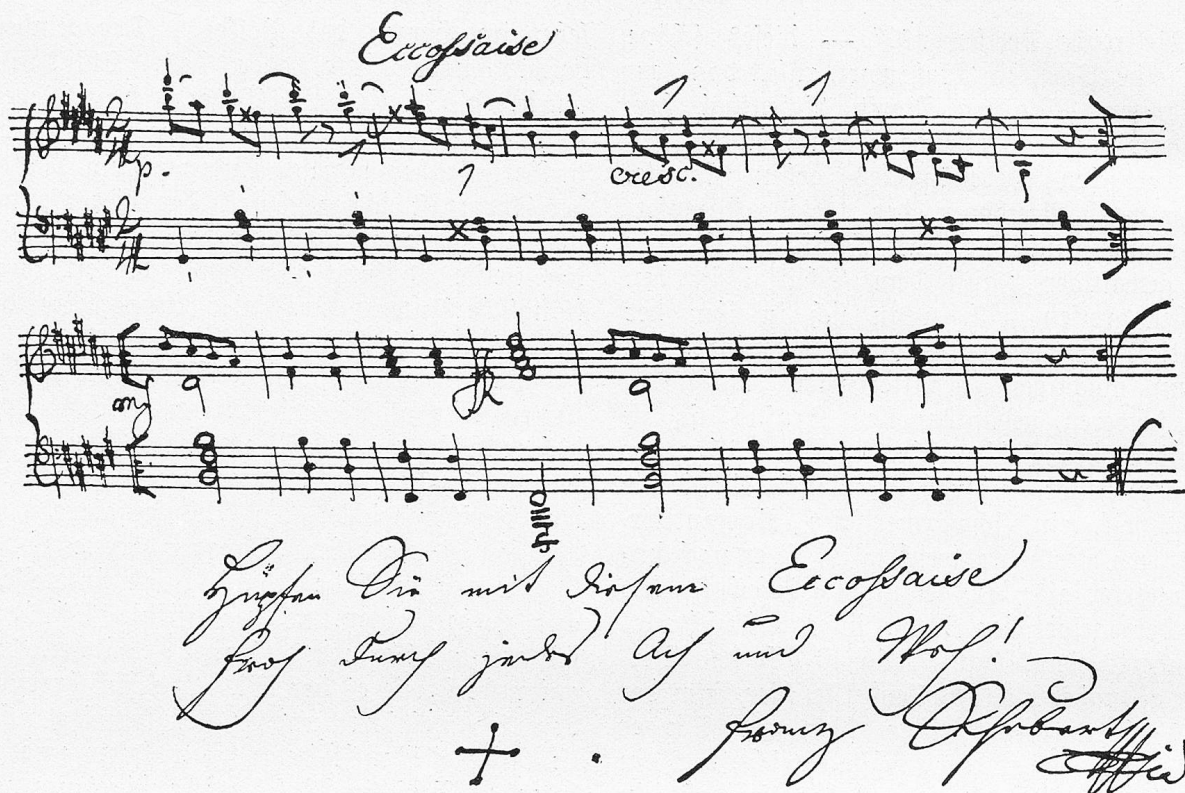 Eccossaise
p.
cresc.
Hüpfen Sie mit diesem Eccossaise
froh durch jedes Ach und Weh!
Franz Schubert